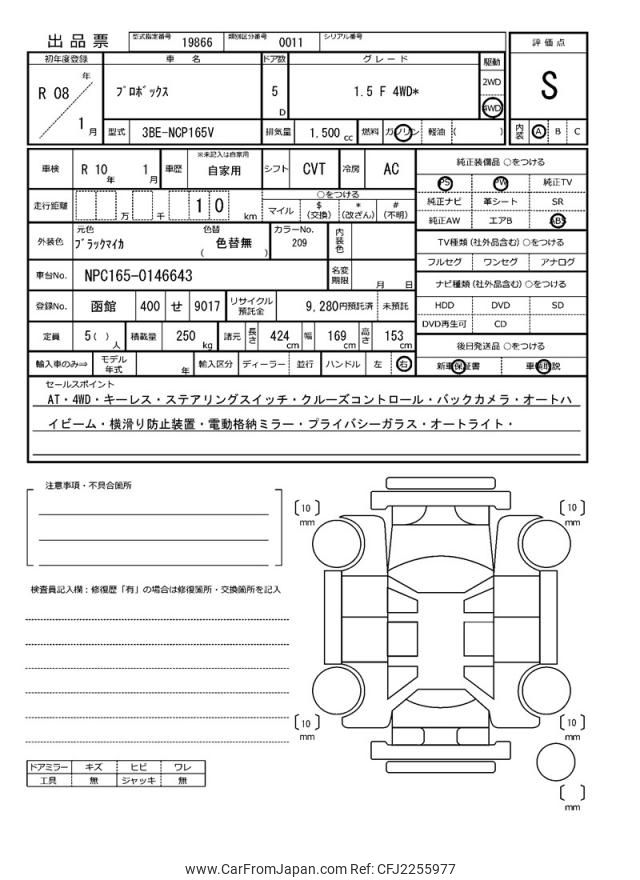 出品票
型式指定番号 19866 類別区分番号 0011 シリアル番号
評価点
S
内装 A B C
初年度登録 車名 ドア数 グレード 駆動
R 08 年 1 月
プロボックス
5 D
1.5 F 4WD*
2WD
4WD
型式 3BE-NCP165V 排気量 1.500 cc 燃料 ガソリン 軽油 ( )
車検 R 10 年 1 月 車歴 ※未記入は自家用 自家用 シフト CVT 冷房 AC
走行距離 万 千 1 0 km
○をつける
マイル $ (交換) * (改ざん) # (不明)
外装色 元色 ブラックマイカ 色替 ( 色替無 ) カラーNo. 209 内装色
車台No. NPC165-0146643 名変期限 月 日
登録No. 函館 400 せ 9017 リサイクル預託金 9,280円預託済 未預託
定員 5( ) 人 積載量 250 kg 諸元 長さ 424 cm 幅 169 cm 高さ 153 cm
輸入車のみ⇒ モデル年式 年 輸入区分 ディーラー 並行 ハンドル 左 右
純正装備品 ○をつける
PS PW 純正TV
純正ナビ 革シート SR
純正AW エアB ABS
TV種類(社外品含む) ○をつける
フルセグ ワンセグ アナログ
ナビ種類(社外品含む) ○をつける
HDD DVD SD
DVD再生可 CD
後日発送品 ○をつける
新車保証書 車輌取説
セールスポイント
AT・4WD・キーレス・ステアリングスイッチ・クルーズコントロール・バックカメラ・オートハ
イビーム・横滑り防止装置・電動格納ミラー・プライバシーガラス・オートライト・
注意事項・不具合箇所
検査員記入欄：修復歴「有」の場合は修復箇所・交換箇所を記入
[10] mm
[10] mm
[10] mm
[10] mm
[ ] mm
ドアミラー キズ ヒビ ワレ
工具 無 ジャッキ 無
www.CarFromJapan.com Ref: CFJ2255977